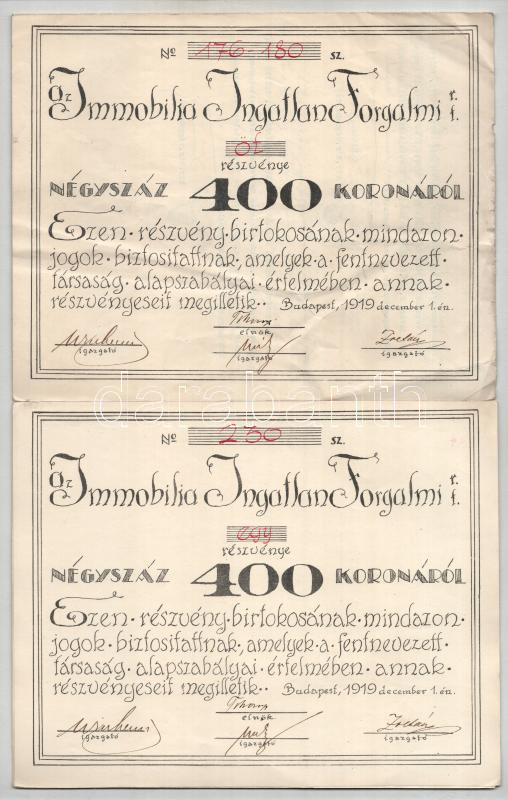 № 176-180 sz.
az Immobilia Ingatlan Forgalmi r. t.
öt
részvénye
NÉGYSZÁZ 400 KORONÁRÓL
Ezen · részvény · birtokosának · mindazon ·
jogok · biztosittatnak, amelyek · a · fentnevezett ·
társaság · alapszabályai · értelmében · annak ·
részvényeseit megilletik ·· Budapest, 1919 december 1. én.
elnök
igazgató igazgató igazgató
darabanth
№ 230 sz.
az Immobilia Ingatlan Forgalmi r. t.
egy
részvénye
NÉGYSZÁZ 400 KORONÁRÓL
Ezen · részvény · birtokosának · mindazon ·
jogok · biztosittatnak, amelyek · a · fentnevezett ·
társaság · alapszabályai · értelmében · annak ·
részvényeseit megilletik ·· Budapest, 1919 december 1. én.
elnök
igazgató igazgató igazgató